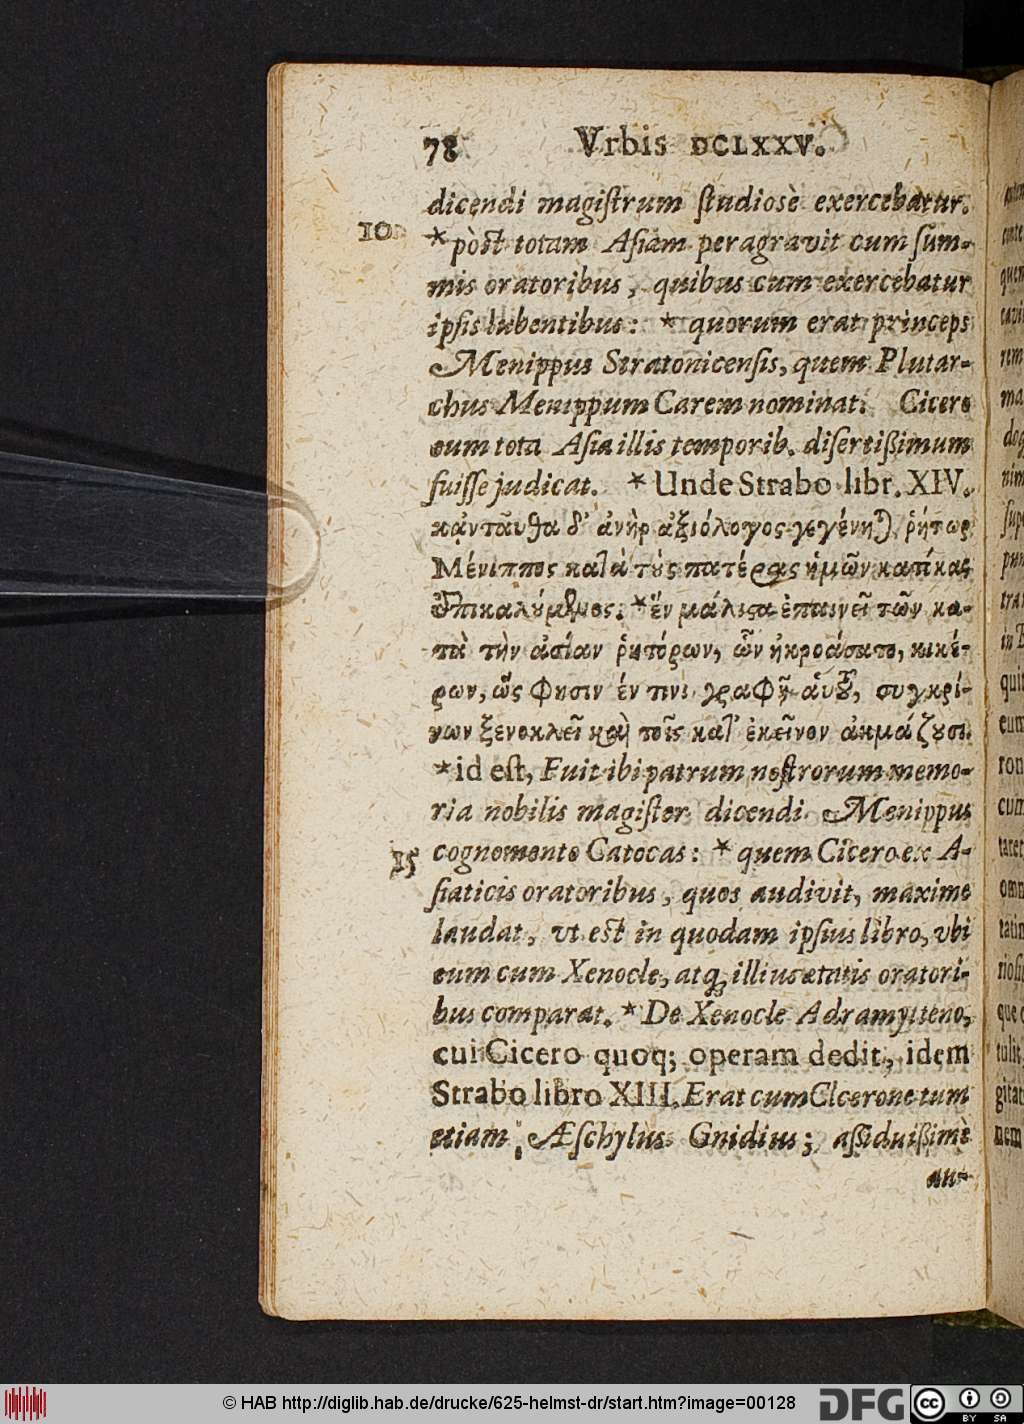 78 Vrbis DCLXXV.
dicendi magiſtrum ſtudiosè exercebatur.
10 *pòst totam Aſiam peragravit cum ſum-
mis oratoribus, quibus cum exercebatur
ipſis lubentibus: * quorum erat princeps
Menippus Stratonicenſis, quem Plutar-
chus Menippum Carem nominat. Cicero
eum tota Aſia illis temporib. diſertißimum
fuiſſe judicat. * Unde Strabo libr. XIV.
κᾀνταῦθα δ᾽ ἀνὴρ ἀξιόλογος γεγένηται ῥήτωρ
Μένιππος κατὰ τοὺς πατέρας ἡμῶν κατόκας
ἐπικαλούμενος. *ἕν μάλιστα ἐπαινεῖ τῶν κα-
τὰ τὴν ἀσίαν ῥητόρων, ὧν ἠκροάσατο, κικέ-
ρων, ὥς φησιν ἔν τινι γραφῇ αὐτοῦ, συγκρί-
νων ξενοκλεῖ καὶ τοῖς κατ᾽ ἐκεῖνον ἀκμάζουσι.
*id eſt, Fuit ibi patrum nostrorum memo-
ria nobilis magiſter dicendi Menippus
15 cognomento Catocas: * quem Cicero ex A-
ſiaticis oratoribus, quos audivit, maxime
laudat, vt est in quodam ipſius libro, vbi
eum cum Xenocle, atq; illius ætatis oratori-
bus comparat. * De Xenocle Adramytteno,
cui Cicero quoq; operam dedit, idem
Strabo libro XIII. Erat cum Cicerone tum
etiam Æſchylus Gnidius; aßiduißimè
au-
© HAB http://diglib.hab.de/drucke/625-helmst-dr/start.htm?image=00128
DFG
cc
BY SA